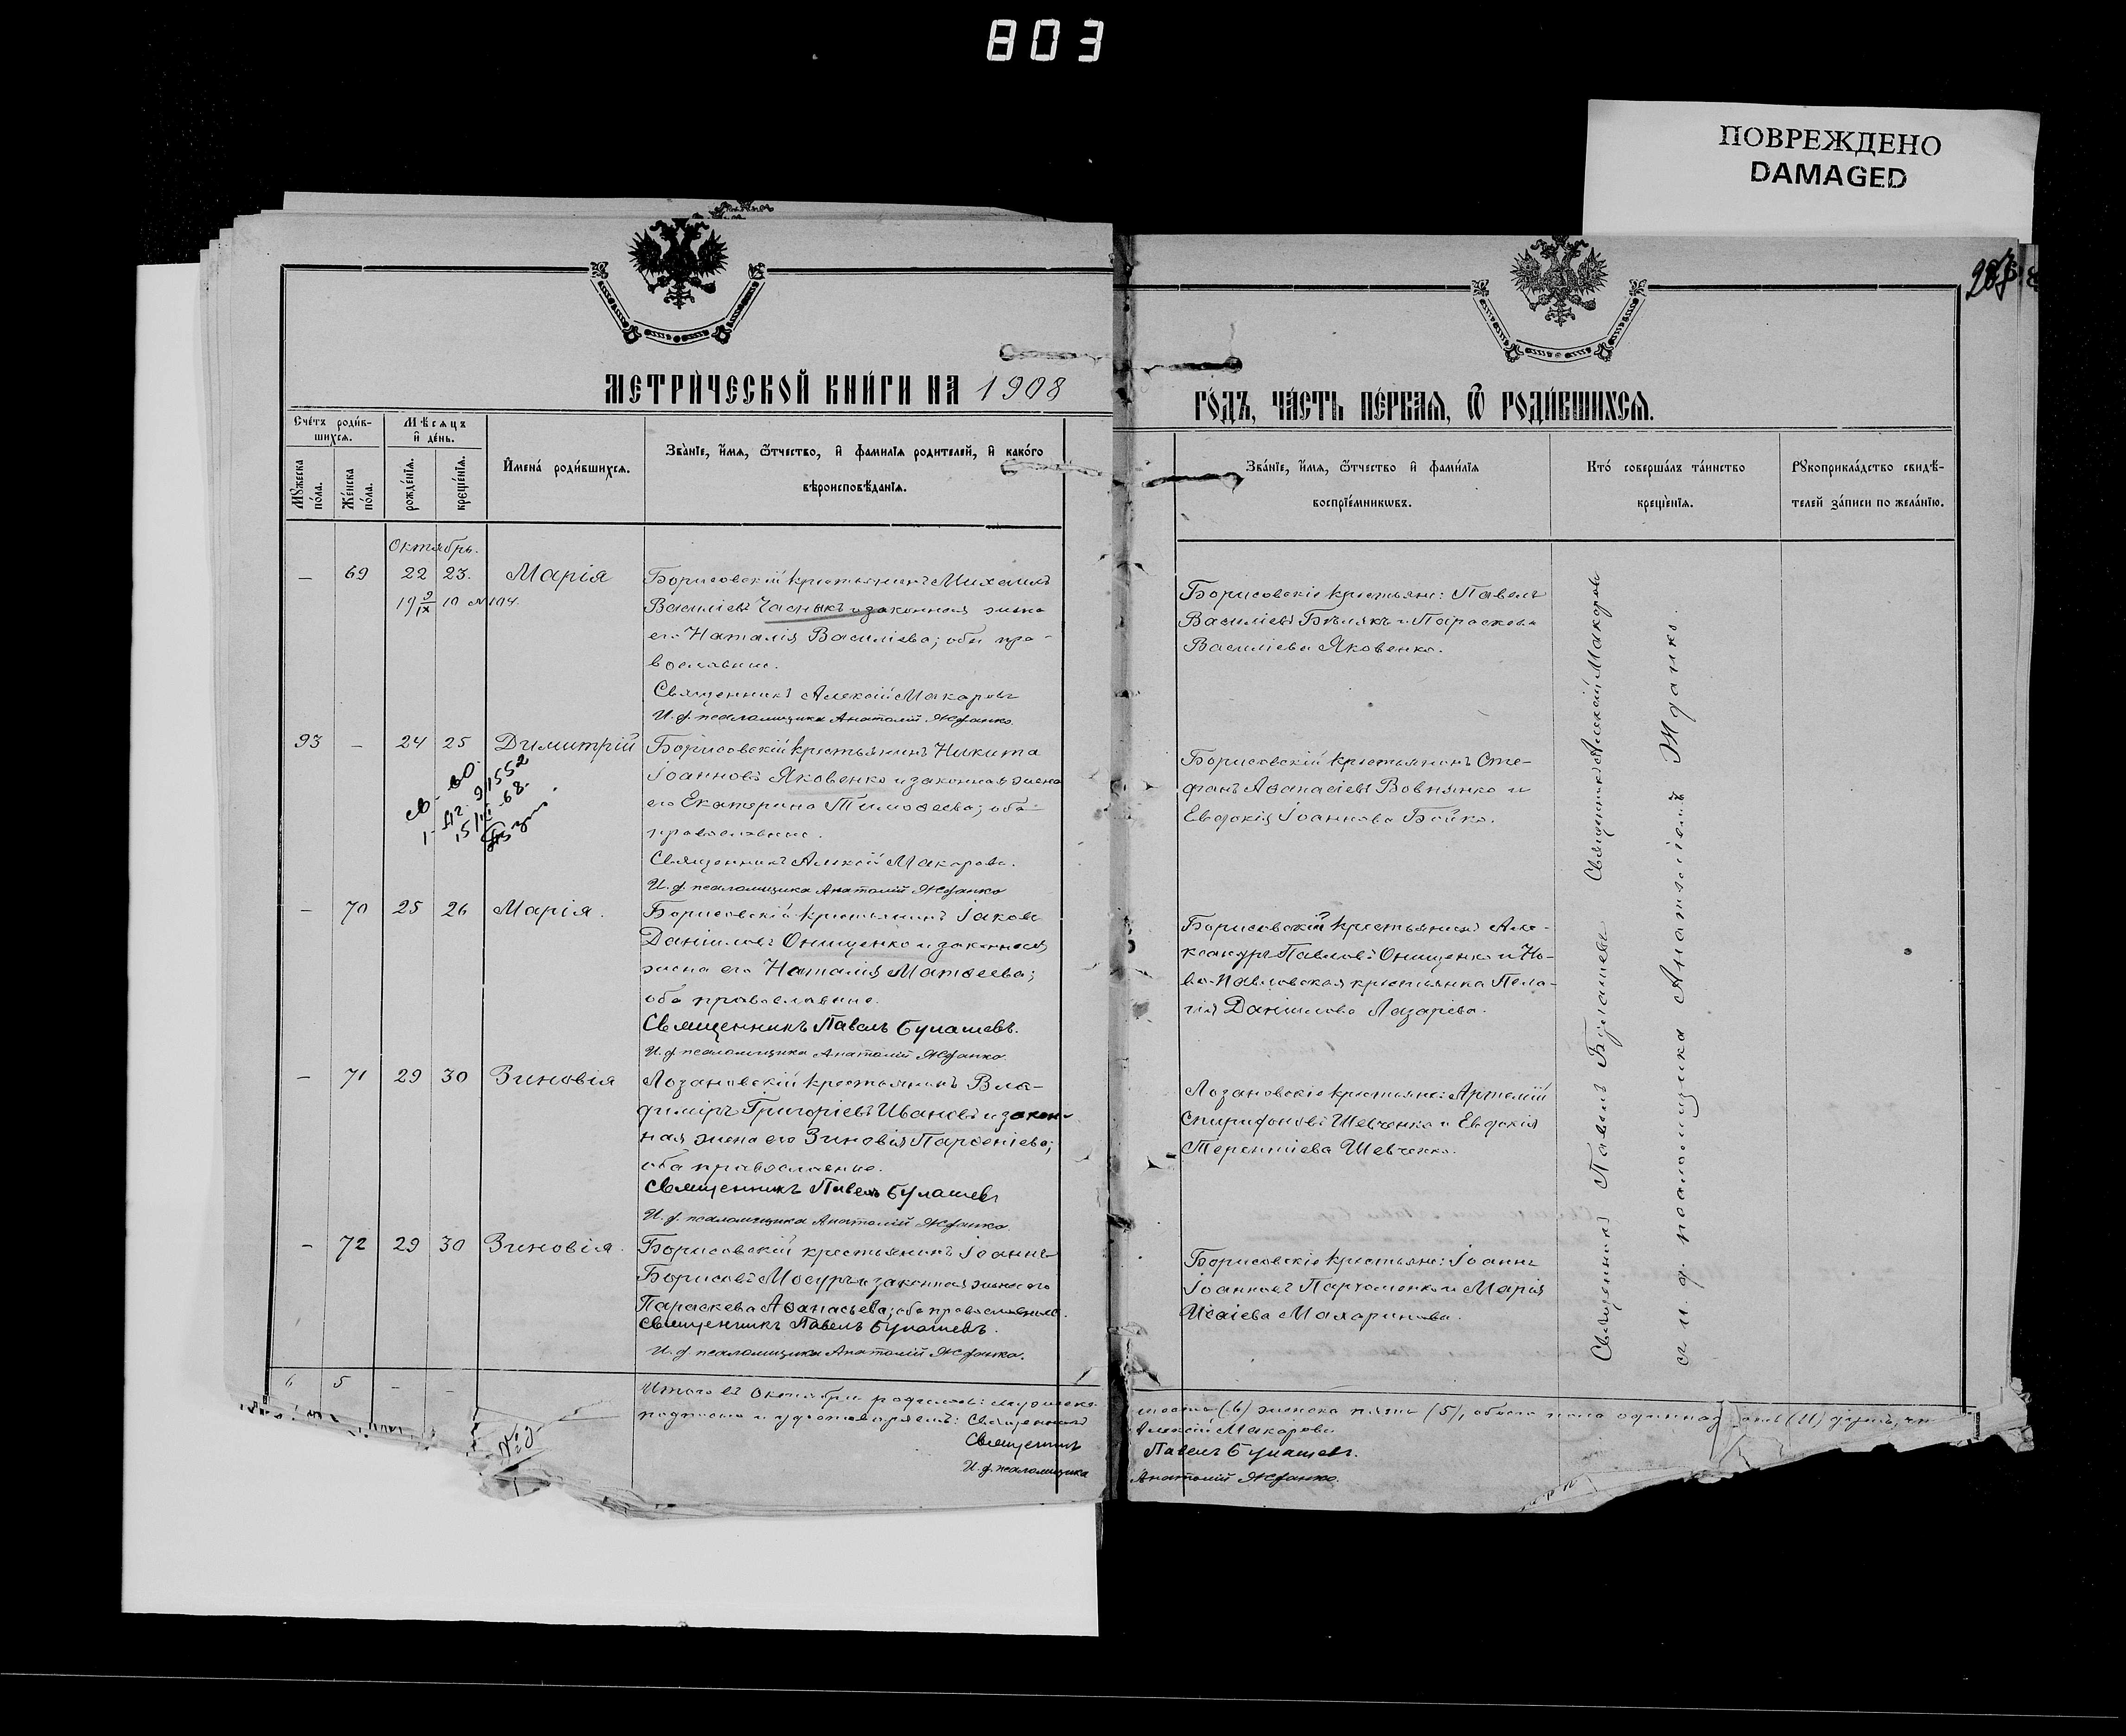 803
ПОВРЕЖДЕНО
DAMAGED
МЕТРИ́ЧЕСКОЙ КНИ́ГИ НА 1908
ГО́ДЪ, ЧА́СТЬ ПЕ́РВАѦ, Ѡ РОДИ́ВШИХСѦ.
Сче́тъ роди́в-
шихсѧ.
Мѣ́сѧцъ
и҆ де́нь.
Мꙋ́жеска
по́ла.
Же́нска
по́ла.
рожде́нїѧ.
креще́нїѧ.
И҆мена̀ роди́вшихсѧ.
Зва́нїе, и҆́мѧ, ѻ҆́тчество, и҆ фами́лїѧ роди́телей, и҆ како́го
вѣроисповѣ́данїѧ.
Зва́нїе, и҆́мѧ, ѻ҆́тчество и҆ фами́лїѧ
воспрїе́мникѡвъ.
Кто̀ соверша́лъ та́инство
креще́нїѧ.
Рꙋкоприкла́дство свидѣ́-
телей за́писи по жела́нїю.
Октябрь.
— 69 22 23. Марія
Борисовскій крестьянинъ Михаилъ
Василіевъ Часныкъ и законная жена
его Наталія Василіева; оба пра-
вославные.
Священникъ Алексій Макаровъ
И. д. псаломщика Анатолій Жданко.
Борисовскіе крестьяне: Павелъ
Василіевъ Бѣлякъ и Параскева
Василіева Яковенко.
93 — 24 25 Димитрій
Борисовскій крестьянинъ Никита
Іоанновъ Яковенко и законная жена
его Екатерина Тимоѳеева; оба
православные.
Священникъ Алексій Макаровъ.
И. д. псаломщика Анатолій Жданко
Борисовскій крестьянинъ Сте-
фанъ Аѳанасіевъ Вовнянко и
Евдокія Іоаннова Бойко.
— 70 25 26 Марія.
Борисовскій крестьянинъ Іаковъ
Даніиловъ Онищенко и законная
жена его Наталія Матѳеева;
оба православные.
Священникъ Павелъ Булашевъ.
И. д. псаломщика Анатолій Жданко.
Борисовскій крестьянинъ Але-
ксандръ Павловъ Онищенко и Но-
во-Павловская крестьянка Пела-
гія Даніилова Лазарева.
— 71 29 30 Зиновія
Лозановскій крестьянинъ Вла-
диміръ Григоріевъ Ивановъ и закон-
ная жена его Зиновія Парѳеніева;
оба православные.
Священникъ Павелъ Булашевъ
И. д. псаломщика Анатолій Жданко
Лозановскіе крестьяне: Артемій
Спиридоновъ Шевченко и Евдокія
Терентіева Шевченко.
— 72 29 30 Зиновія.
Борисовскій крестьянинъ Іоаннъ
Борисовъ Мосуръ и законная жена его
Параскева Аѳанасьева; оба православные.
Священникъ Павелъ Булашевъ.
И. д. псаломщика Анатолій Жданко.
Борисовскіе крестьяне: Іоаннъ
Іоанновъ Пархоменко и Марія
Исаіева Махаринова.
Священникъ Павелъ Булашевъ Священникъ Алексій Макаровъ
съ и. д. псаломщика Анатоліемъ Жданко.
6 5 — —
Итого въ Октябрѣ родилось: мужеска
шесть (6) женска пять (5), обоего пола одиннад-
подписью и удостовѣряемъ: Священникъ
Алексій Макаровъ
Священникъ
Павелъ Булашевъ.
И. д. псаломщика
Анатолій Жданко.